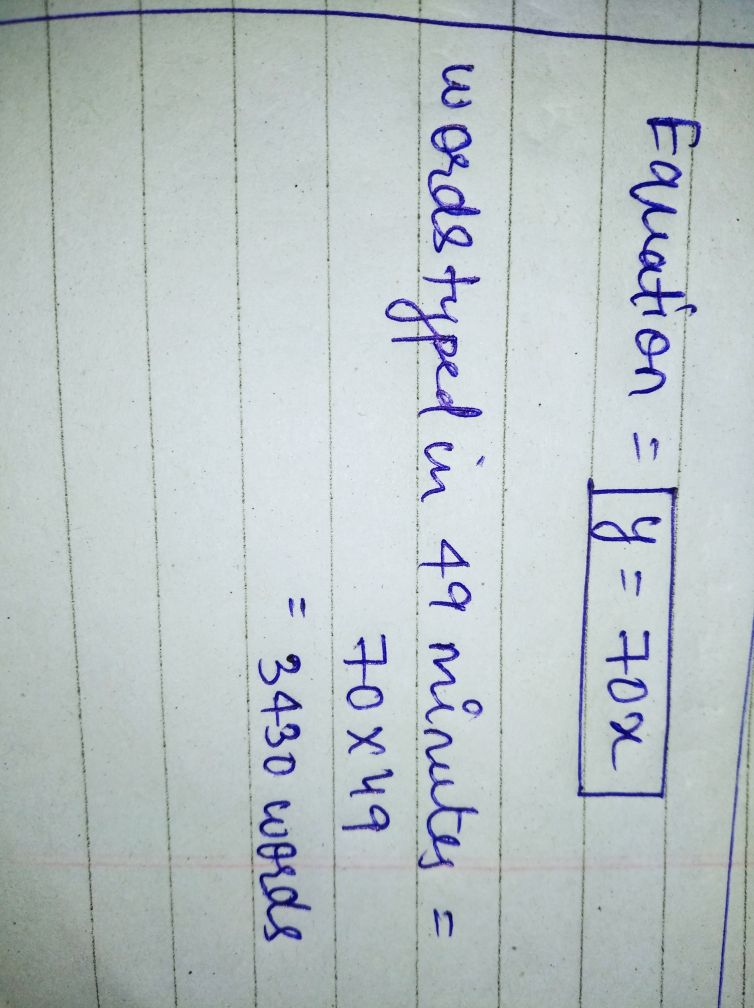 Equation = y = 70x
words typed in 49 minutes =
70 x 49
= 3430 words